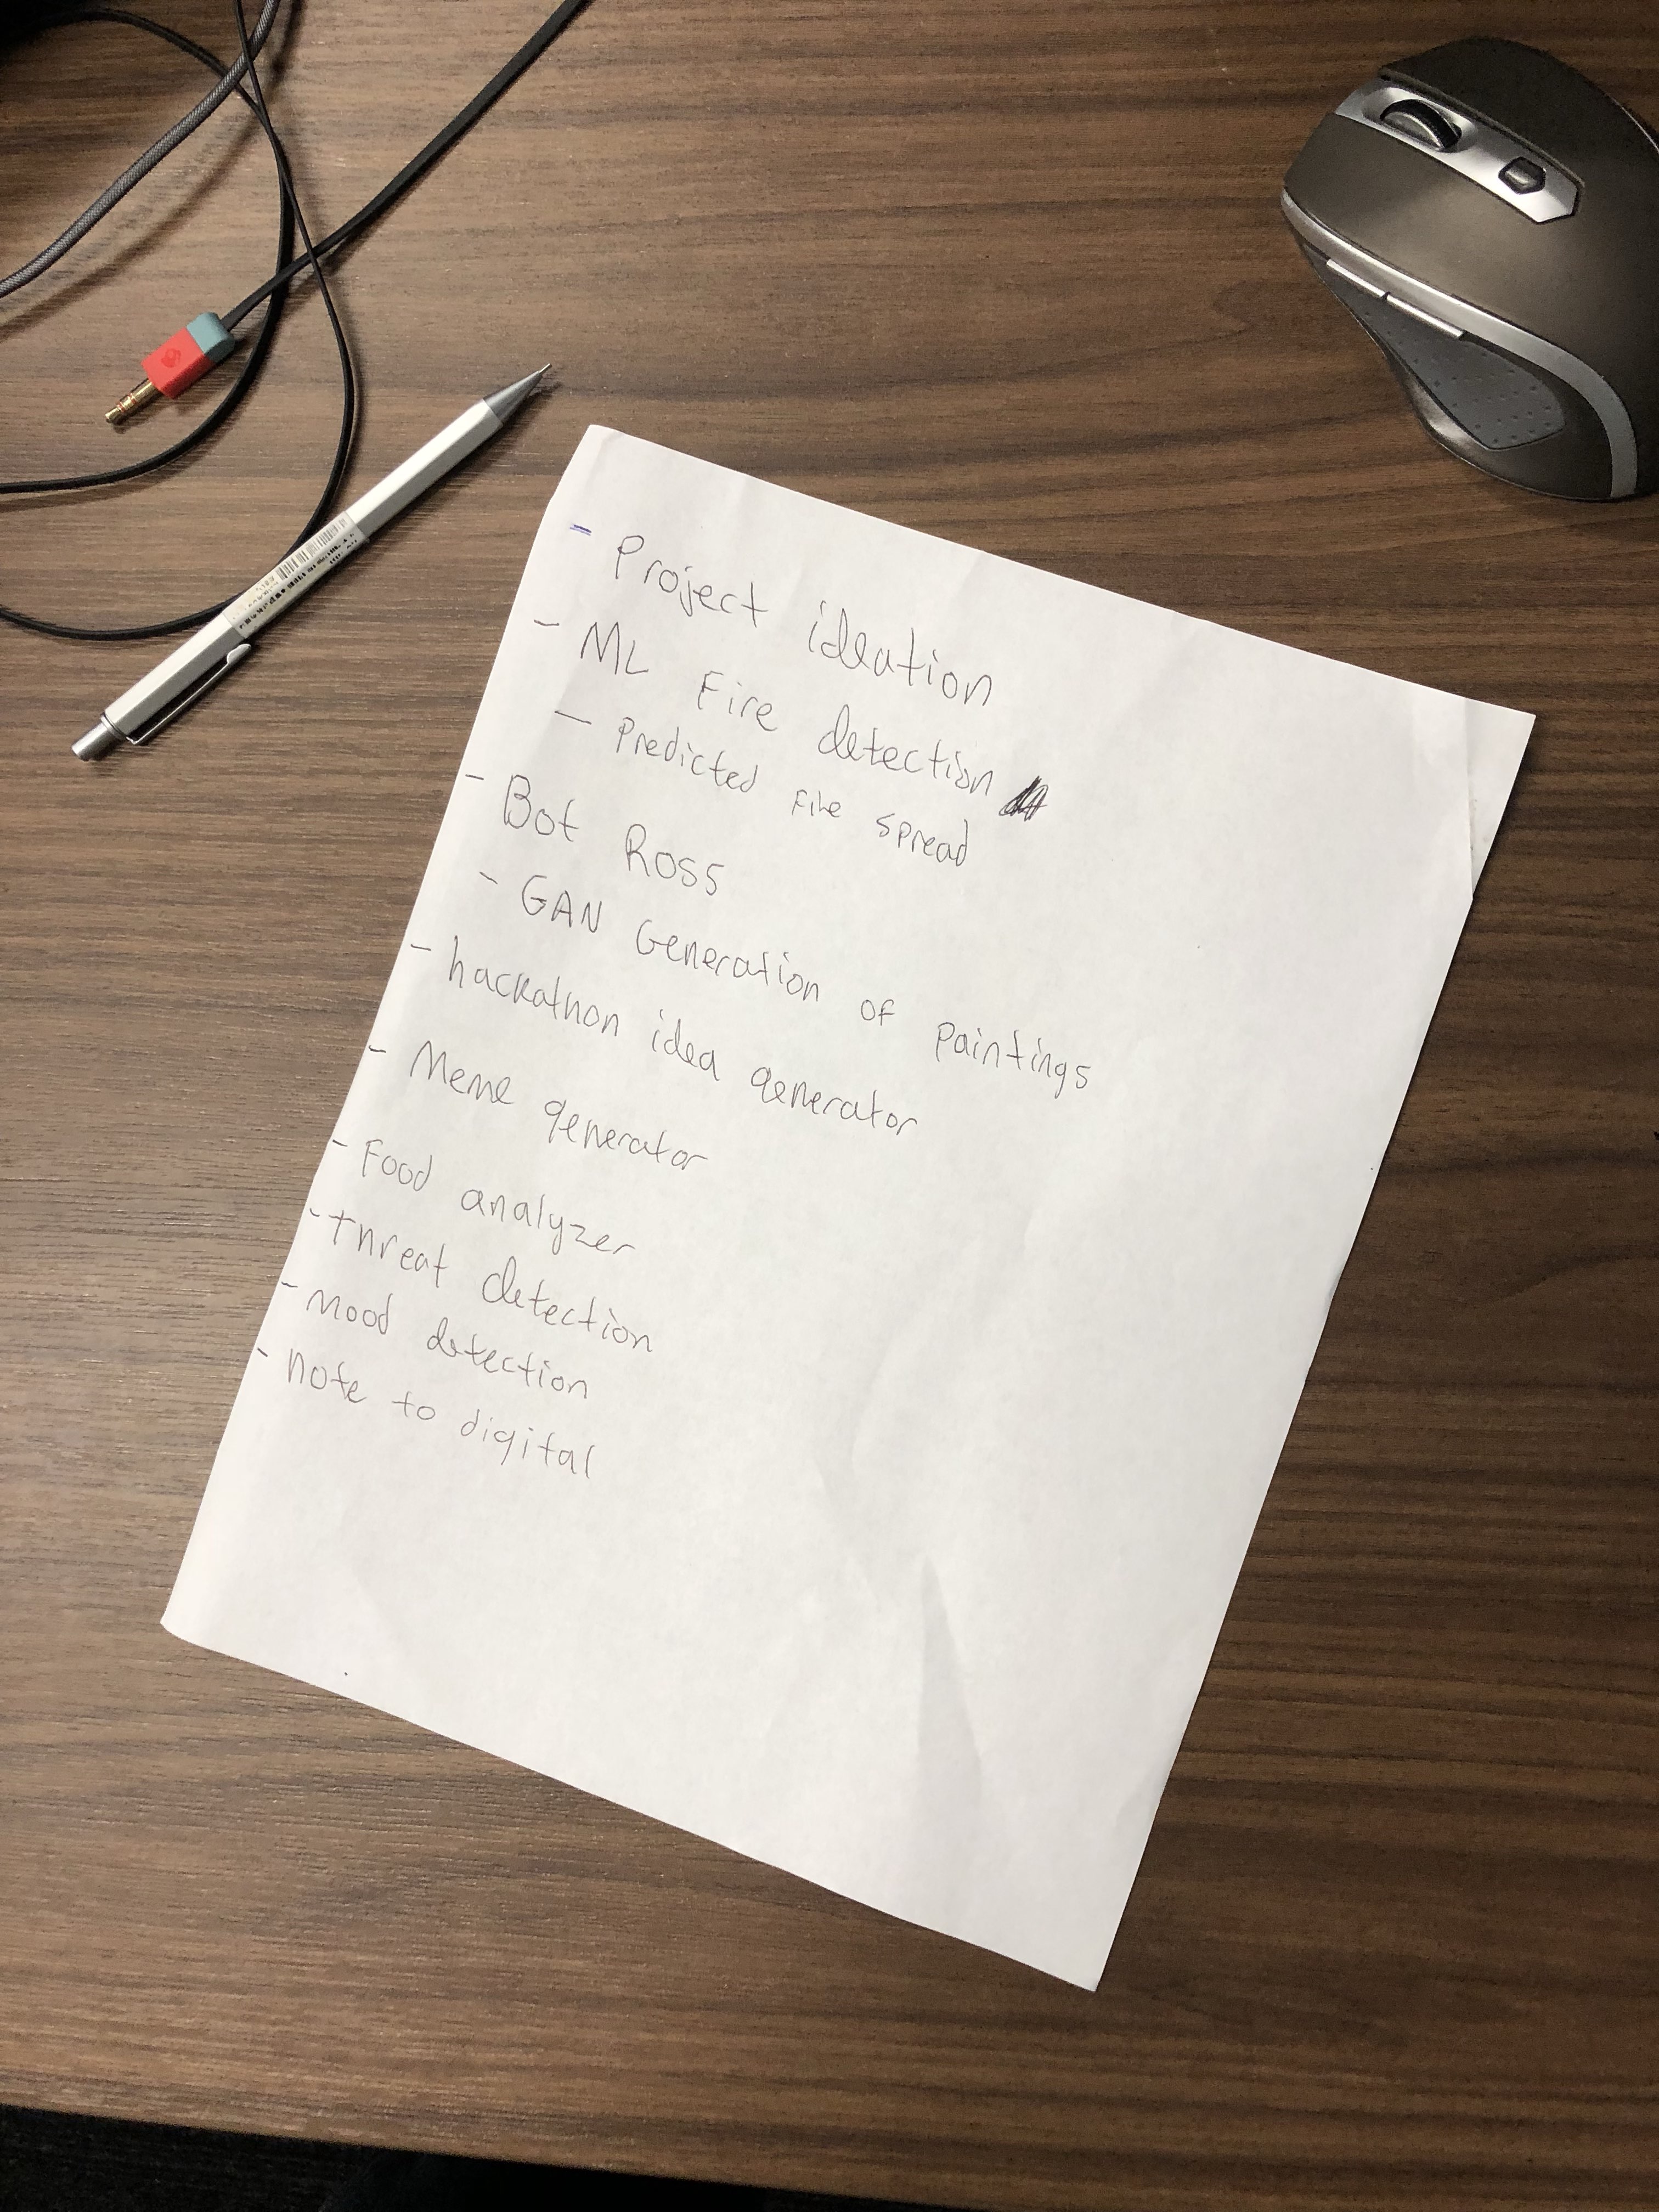 - Project ideation
- ML Fire detection
- Predicted fire spread
- Bot Ross
- GAN Generation of paintings
- hackathon idea generator
- Meme generator
- Food analyzer
- threat detection
- mood detection
- note to digital